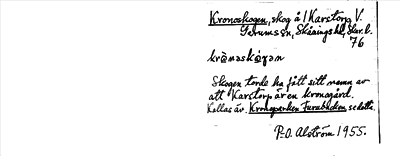 Kronoskogen, skog å 1 Karstorp V.
Skånings hd, Skar. l.
76
Skogen torde ha fått sitt namn av
att Karstorp är en kronogård.
Kallas äv. Kronoparken Furubacken se detta.
P-O. Alström 1955.